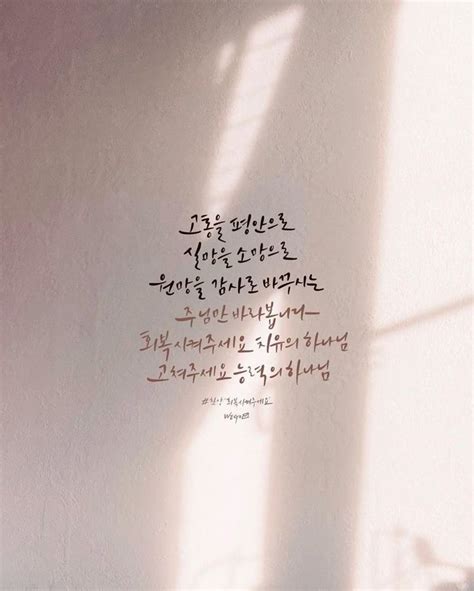 고통을 평안으로
실망을 소망으로
원망을 감사로 바꾸시는
주님만 바라봅니다
회복시켜주세요 치유의 하나님
고쳐주세요 능력의 하나님
#찬양 '회복시켜주세요'